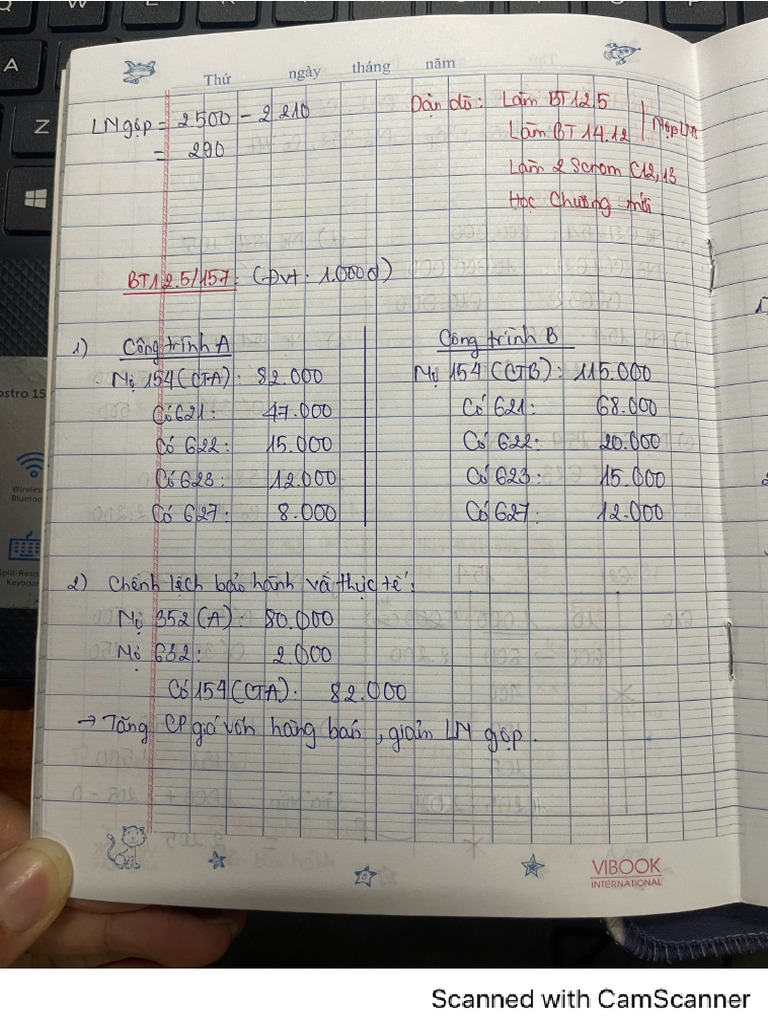 Thứ ngày tháng năm
LN gộp = 2500 - 2210
= 290
Dặn dò: Làm BT12.5
Làm BT 14.12
Nộp LMS
Làm 2 Scrom C12,13
Học Chương mới
BT12.5/157: (Đvt: 1.000đ)
1) Công trình A
Nợ 154 (CTA): 82.000
Có 621: 47.000
Có 622: 15.000
Có 623: 12.000
Có 627: 8.000
Công trình B
Nợ 154 (CTB): 115.000
Có 621: 68.000
Có 622: 20.000
Có 623: 15.000
Có 627: 12.000
2) Chênh lệch bảo hành và thực tế:
Nợ 352 (A): 80.000
Nợ 632: 2.000
Có 154 (CTA): 82.000
→ Tăng CP giá vốn hàng bán, giảm LN gộp.
VIBOOK
INTERNATIONAL
Scanned with CamScanner